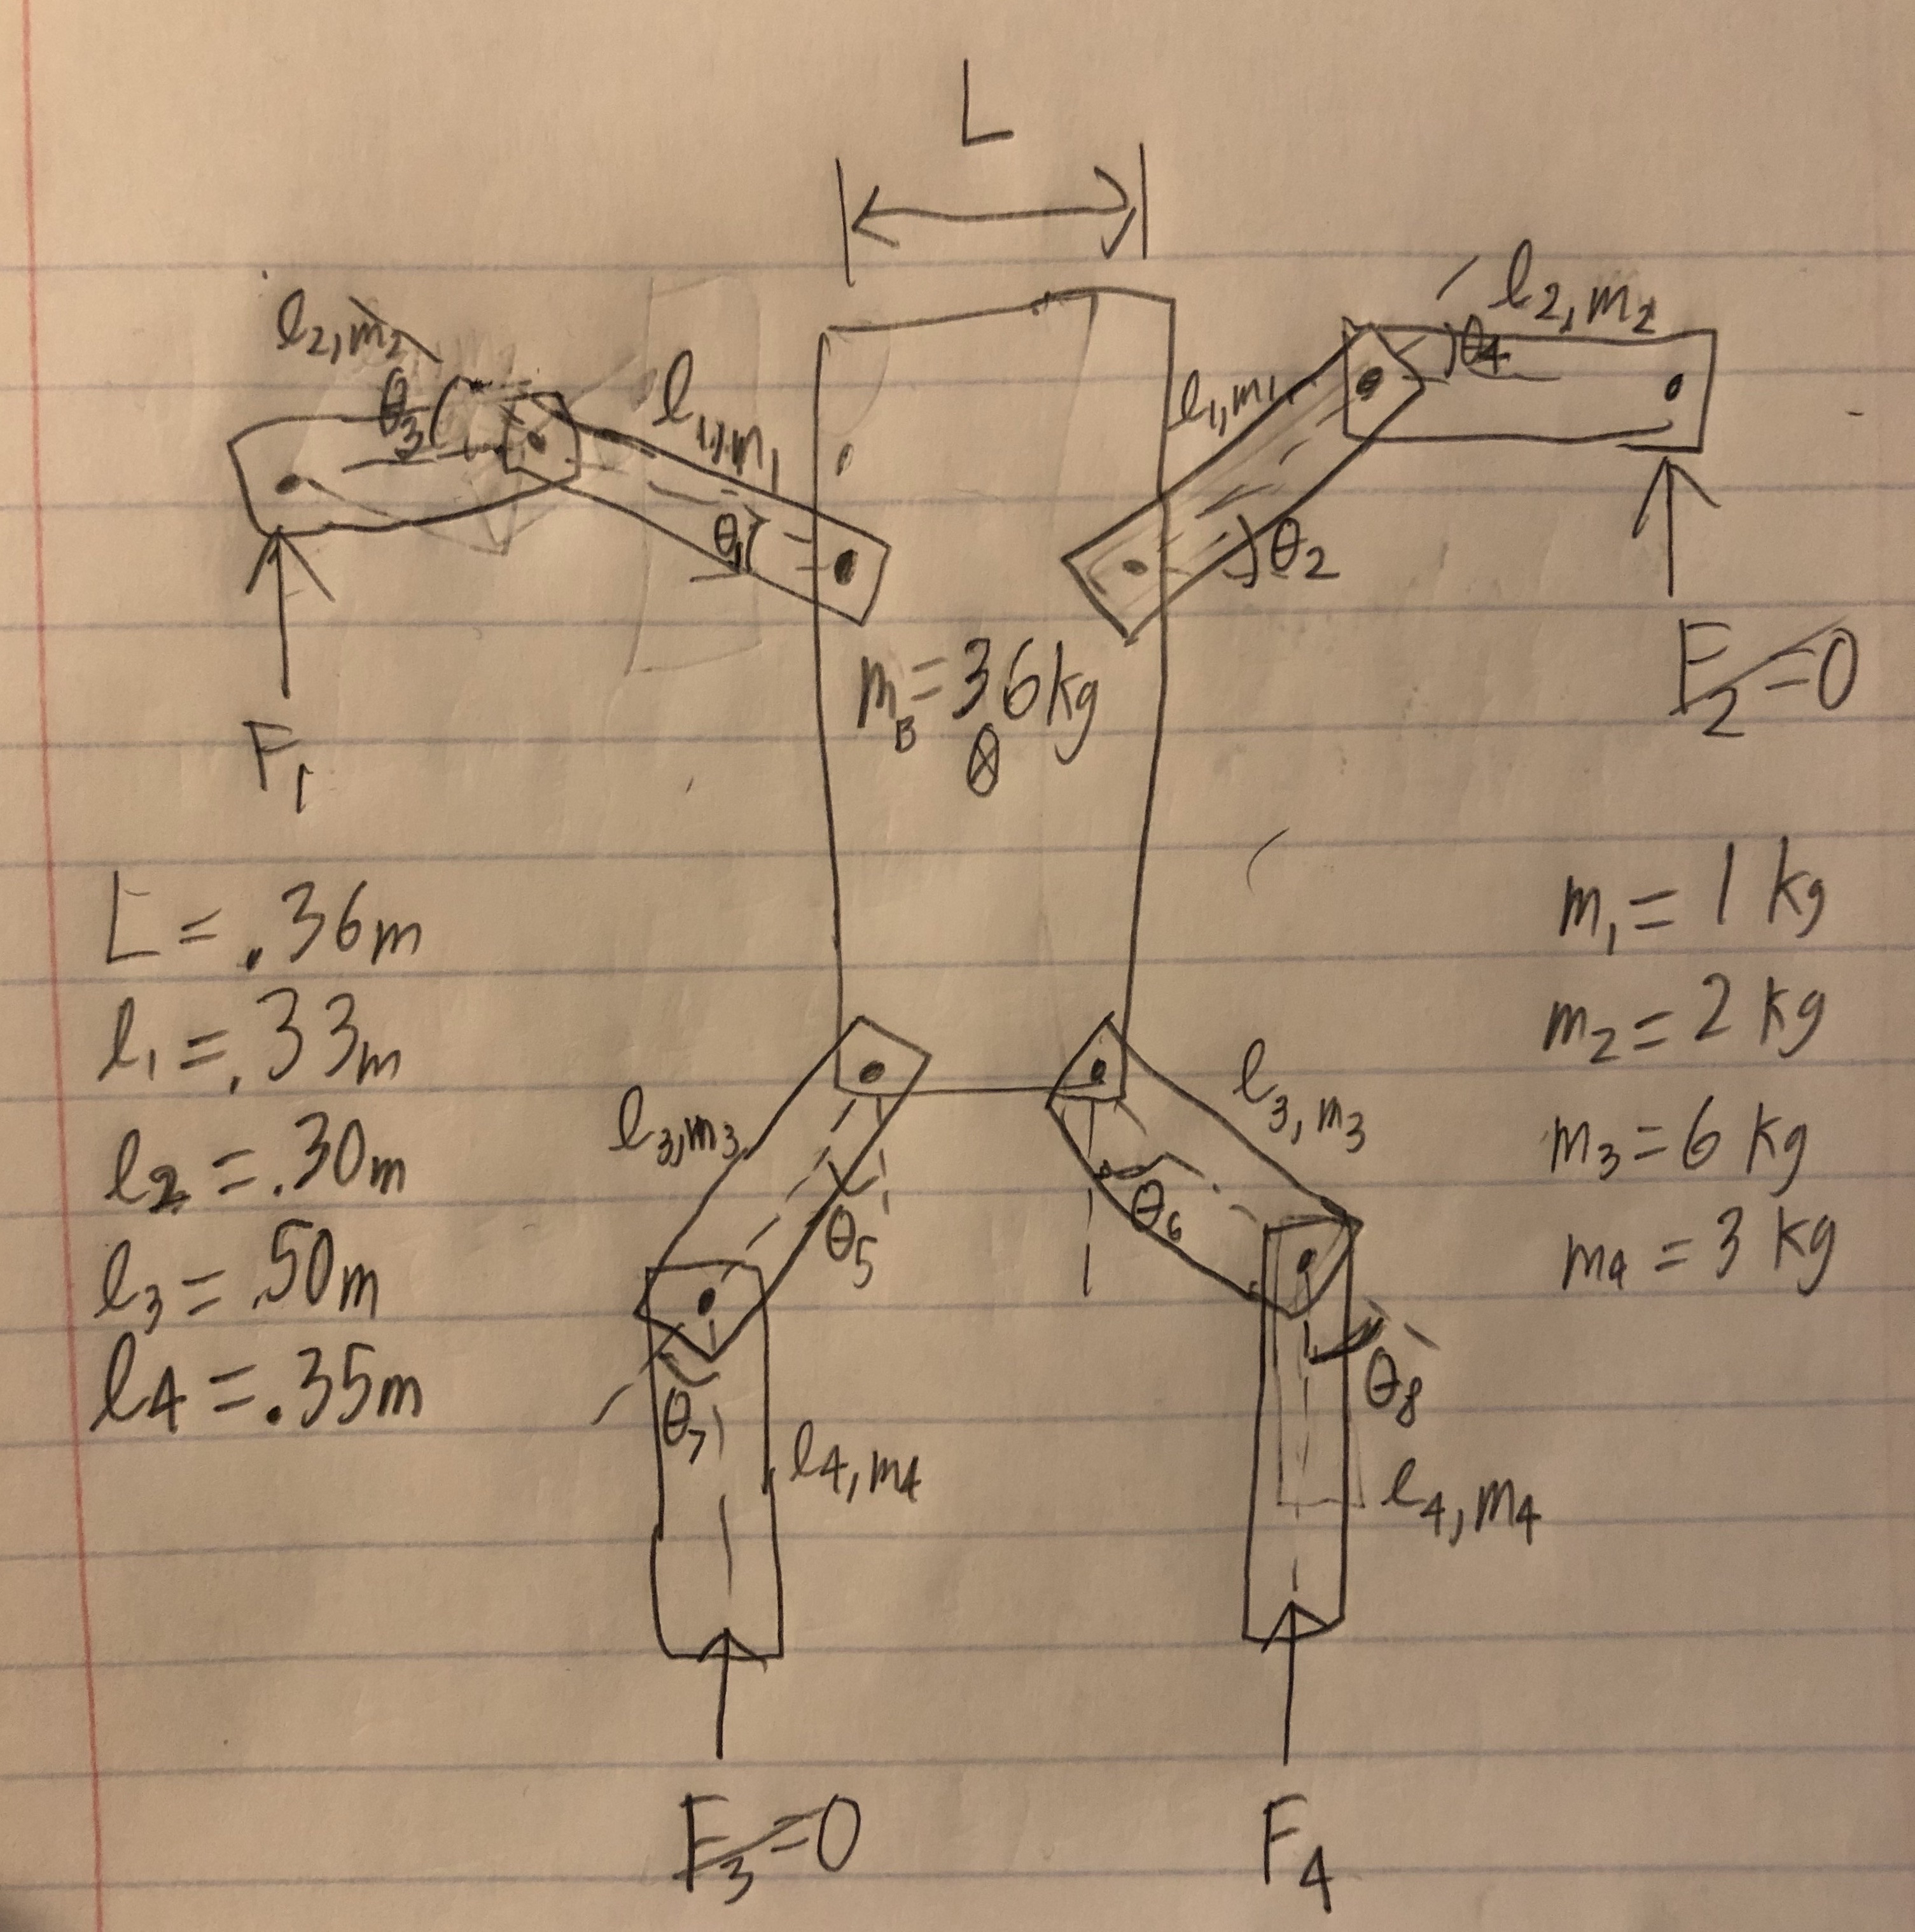 L
l2, m2
θ3
l1, m1
θ1
l1, m1
θ2
l2, m2
θ4
mB = 36 kg
F1
F2 = 0
L = .36m
l1 = .33m
l2 = .30m
l3 = .50m
l4 = .35m
m1 = 1 kg
m2 = 2 kg
m3 = 6 kg
m4 = 3 kg
l3, m3
θ5
l3, m3
θ6
θ7
l4, m4
θ8
l4, m4
F3 = 0
F4